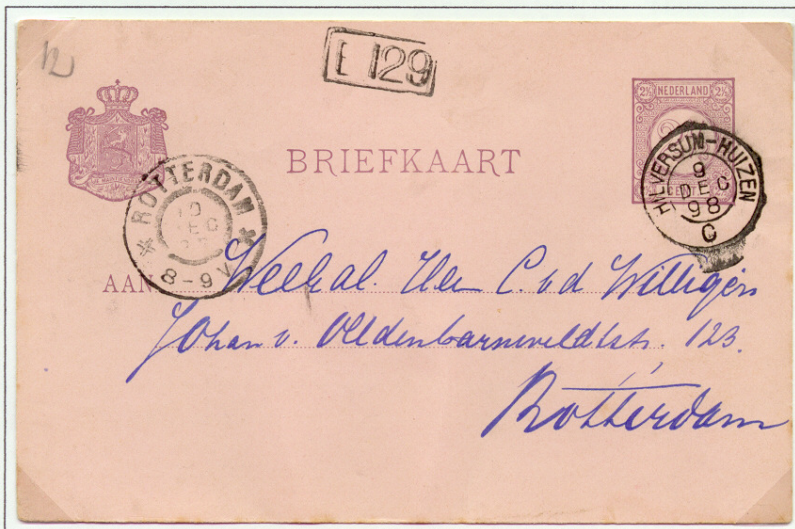 12
E 129
2½ NEDERLAND 2½
BRIEFKAART
HILVERSUM-HUIZEN
9
DEC
98
C
ROTTERDAM
8-9 V
AAN Weledel. Heer C. v d Willigen
Johan v. Olldenbarneveldtstr. 123.
Rotterdam